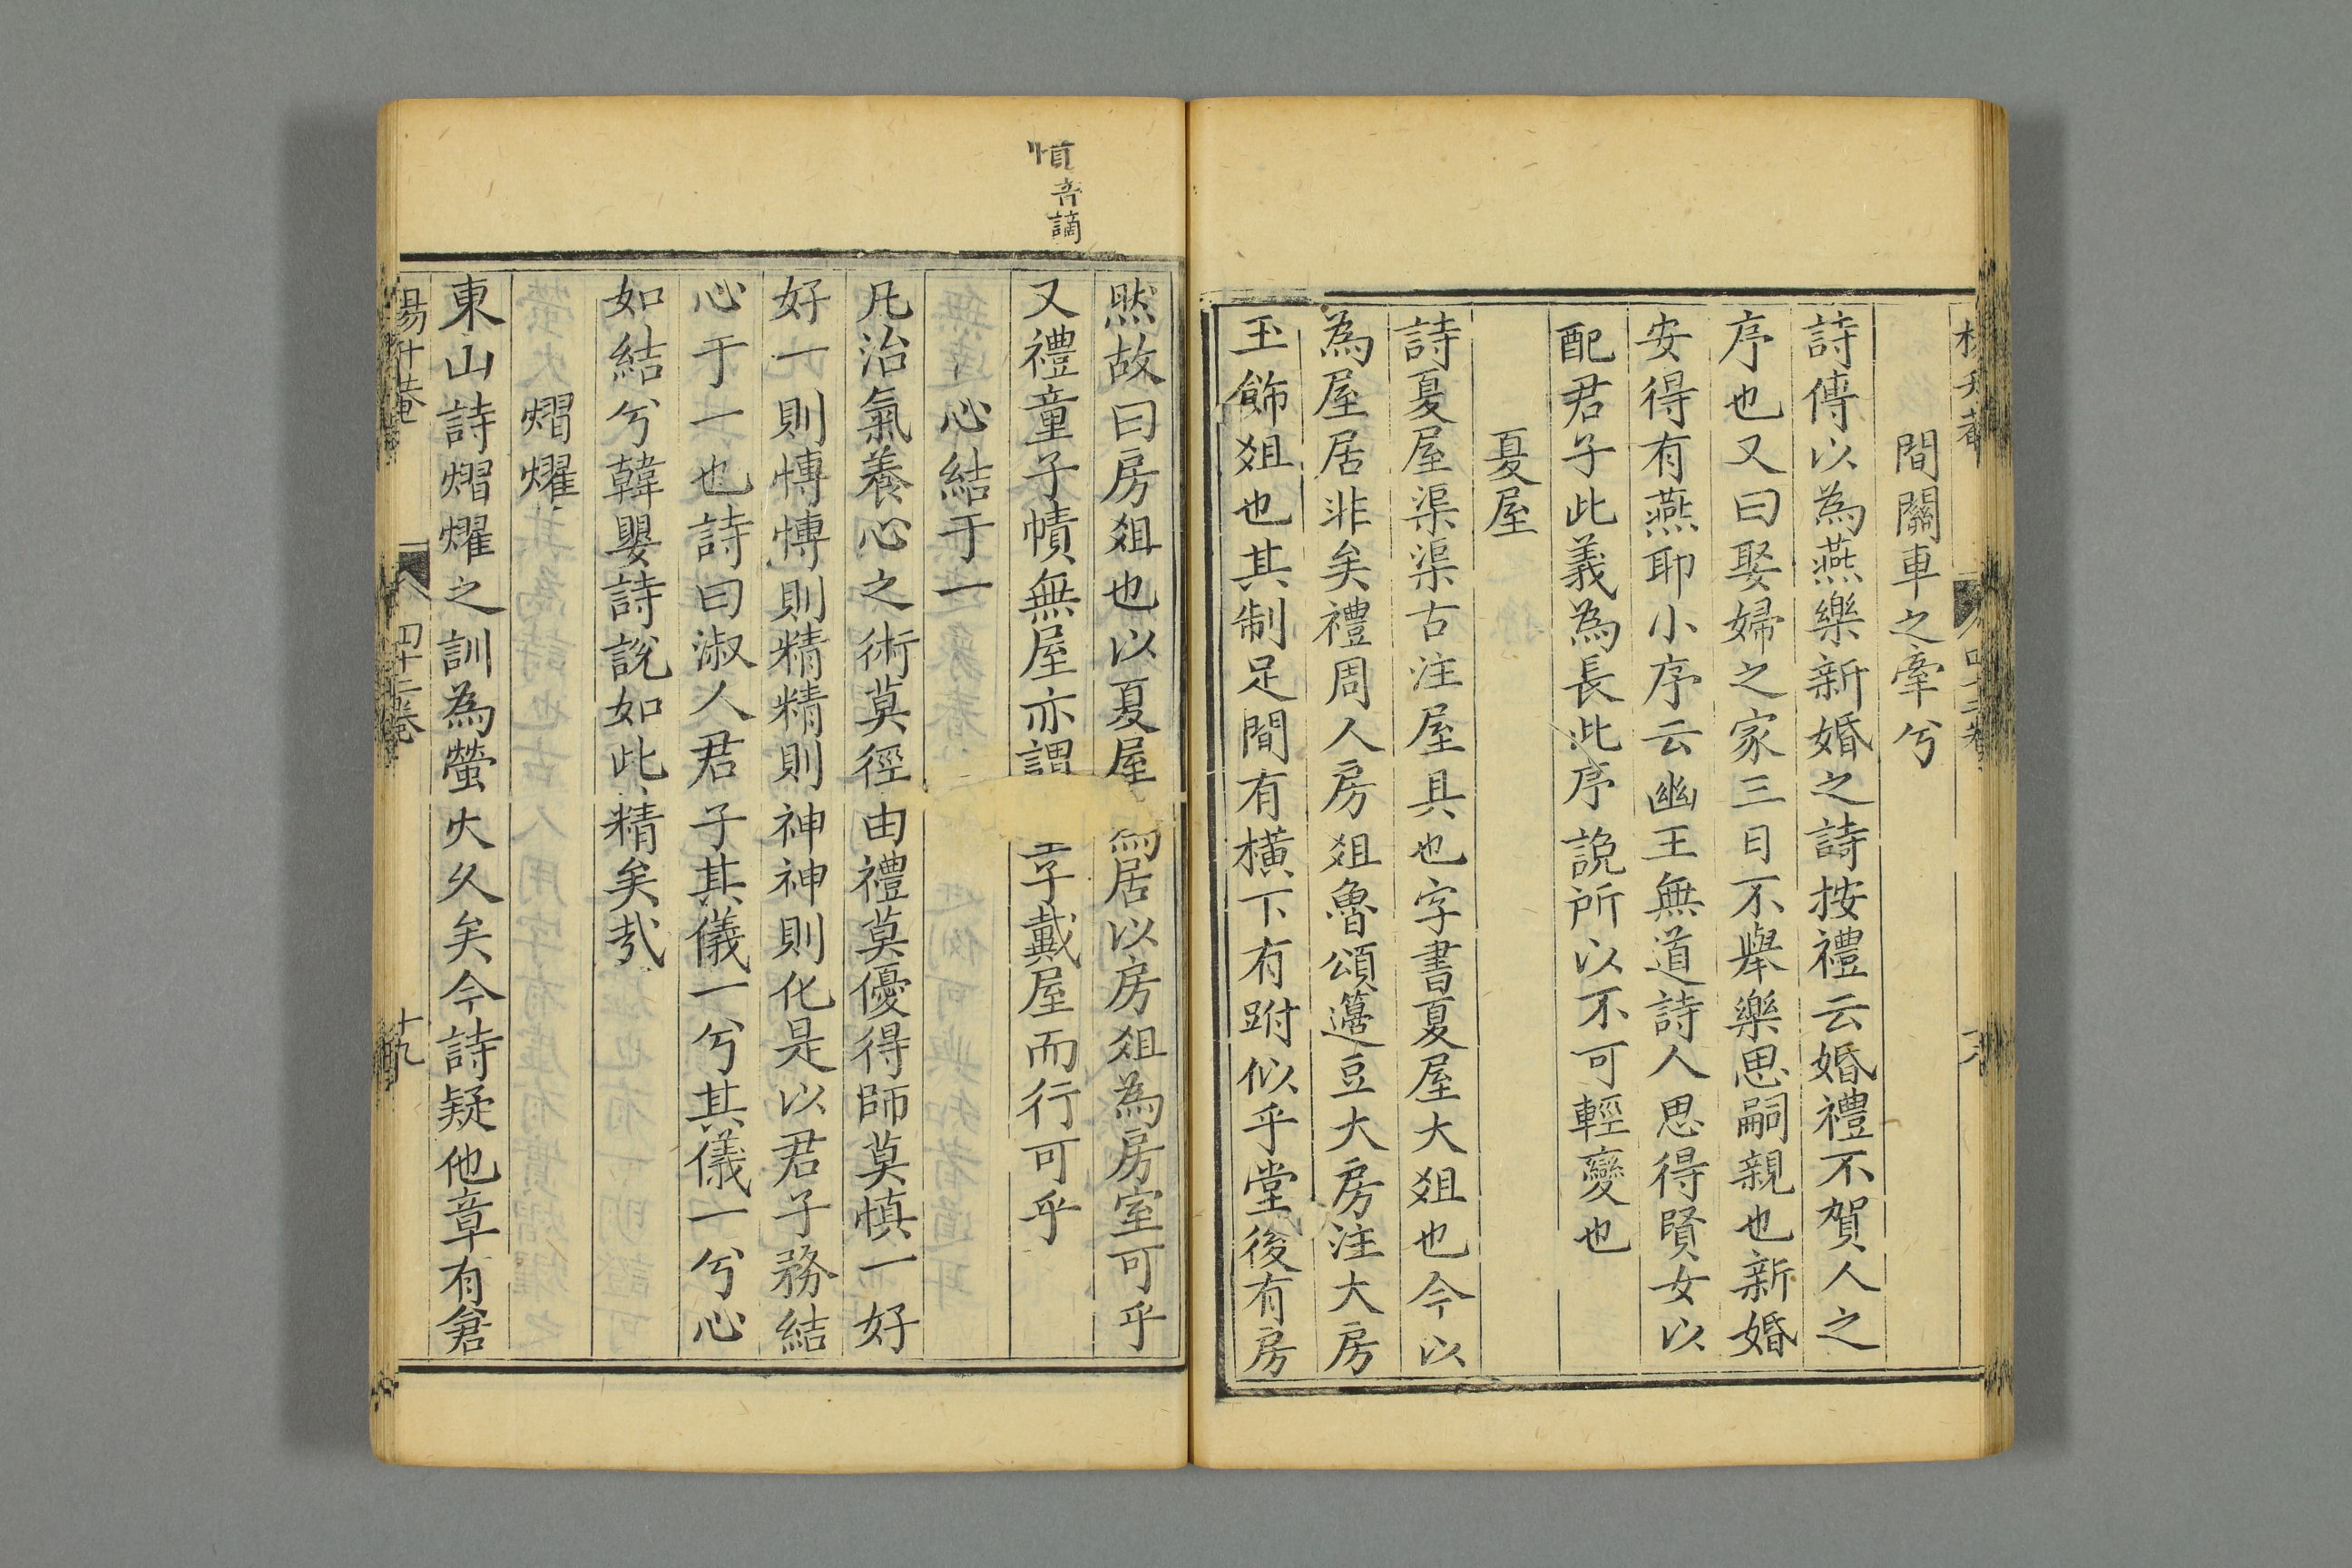 間關車之舝兮
詩傳以為燕樂新婚之詩按禮云婚禮不賀人之
序也又曰娶婦之家三日不舉樂思嗣親也新婚
安得有燕耶小序云幽王無道詩人思得賢女以
配君子此義為長此序說所以不可輕變也
夏屋
詩夏屋渠渠古注屋具也字書夏屋大俎也今以
為屋居非矣禮周人房俎魯頌籩豆大房注大房
玉飾俎也其制足間有橫下有跗似乎堂後有房
然故曰房俎也以夏屋為居以房俎為房室可乎
又禮童子幘無屋亦謂子戴屋而行可乎
音謫
心結于一
凡治氣養心之術莫徑由禮莫優得師莫慎一好
好一則慱慱則精精則神神則化是以君子務結
心于一也詩曰淑人君子其儀一兮其儀一兮心
如結兮韓嬰詩說如此精矣哉
熠燿
東山詩熠燿之訓為螢火久矣今詩疑他章有倉
楊升菴
四十二卷
十九